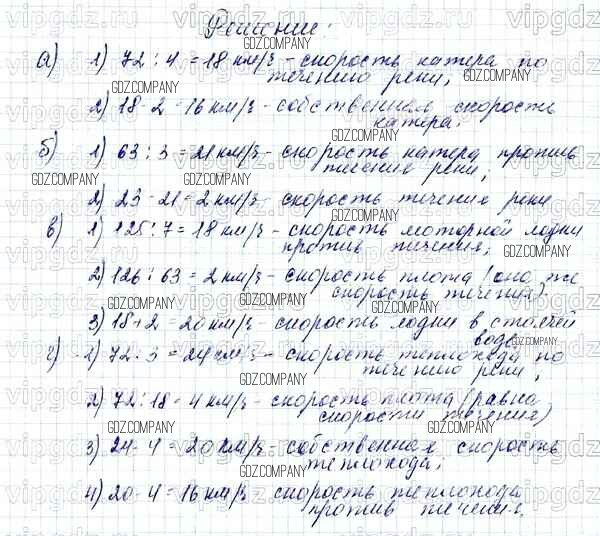 Решение:
а) 1) 72 : 4 = 18 км/ч - скорость катера по
течению реки;
2) 18 - 2 = 16 км/ч - собственная скорость
катера.
б) 1) 63 : 3 = 21 км/ч - скорость катера против
течения реки;
2) 23 - 21 = 2 км/ч - скорость течения реки
в) 1) 126 : 7 = 18 км/ч - скорость моторной лодки
против течения;
2) 126 : 63 = 2 км/ч - скорость плота (она же
скорость течения)
3) 18 + 2 = 20 км/ч - скорость лодки в стоячей
воде
г) 1) 72 : 3 = 24 км/ч - скорость теплохода по
течению реки;
2) 72 : 18 = 4 км/ч - скорость плота (равна
скорости течения)
3) 24 - 4 = 20 км/ч - собственная скорость
теплохода;
4) 20 - 4 = 16 км/ч скорость теплохода
против течения.